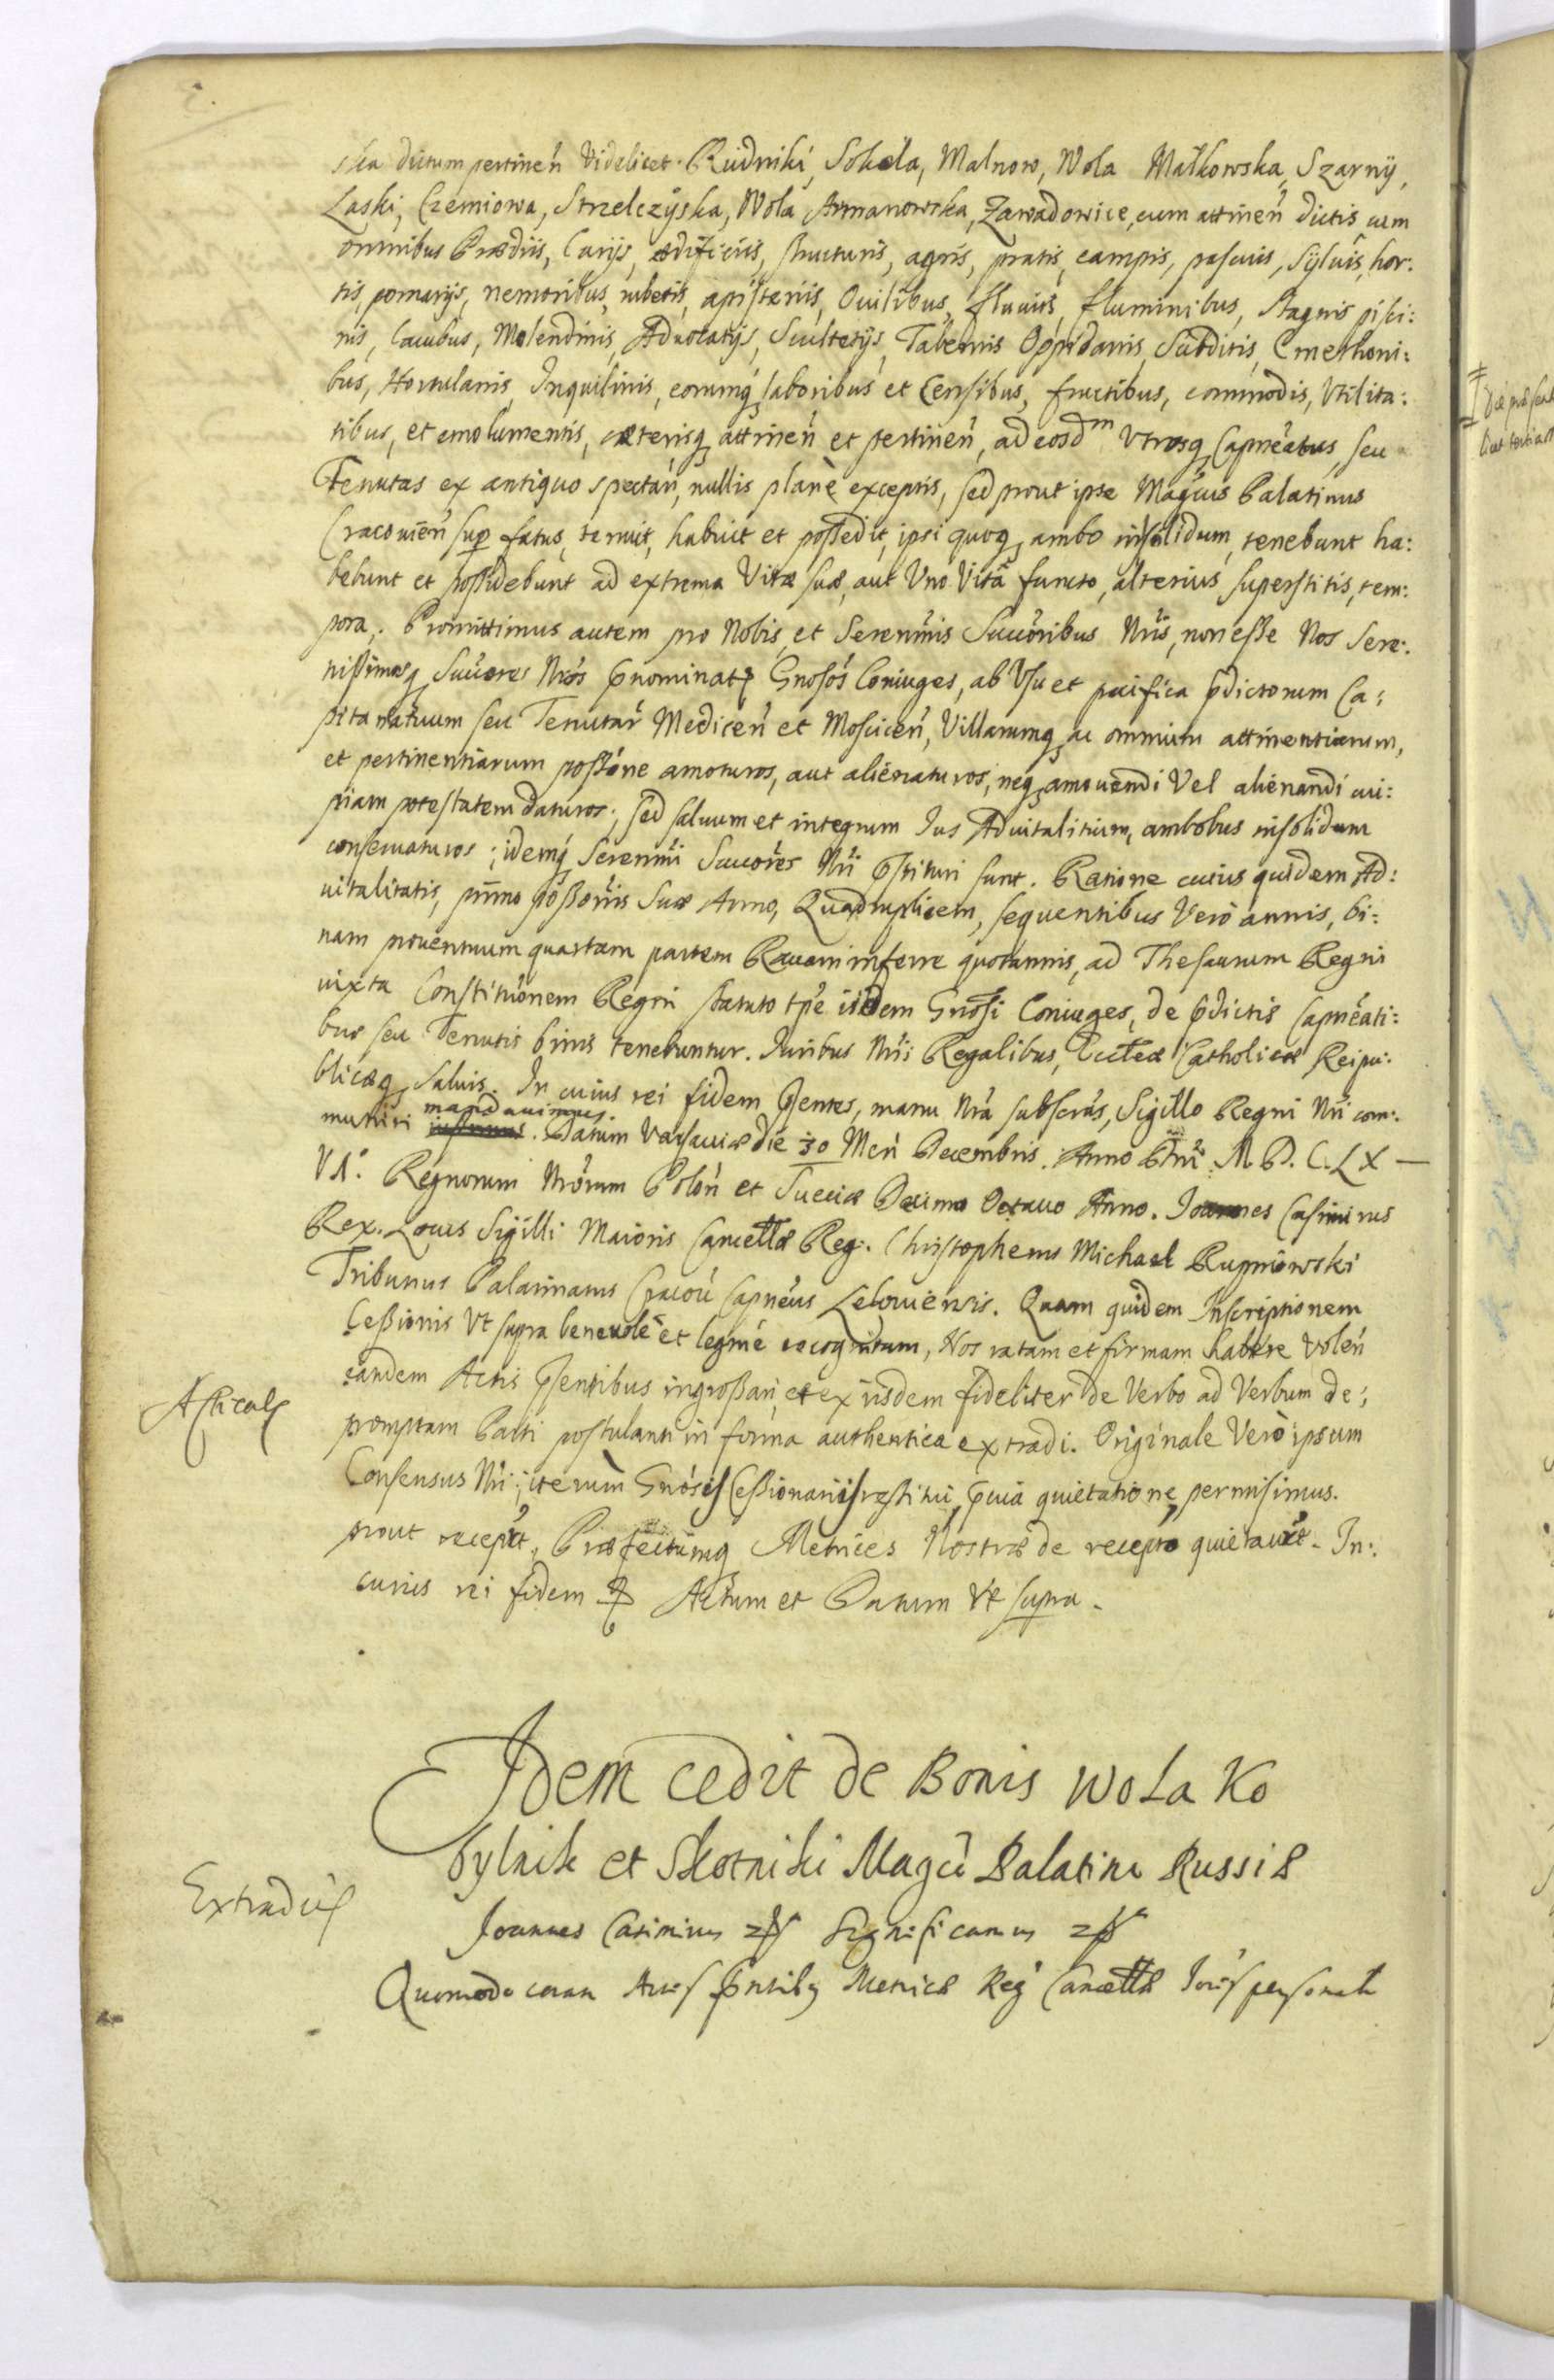 ska dictum pertineń Videlicet. Rudniki, Sokola, Malnow, Wola Małkowska, Szarny,
Laski, Czerniowa, Strzelczyska, Wola Armanowska, Zawadowice, cum attineń dictis cum
omnibus Prædiis, Curijs, ædificiis, structuris, agris, pratis, campis, pascuis, Syluis, hor:
tis, pomarijs, nemoribus, rubetis, apisteriis, Ouilibus, fluuiis, fluminibus, Stagnis pisci:
nis, Lacubus, Molendinis, Aduocatijs, Scultetijs, Tabernis Oppidanis, Subditis, Cmethoni:
bus, Hortulanis, Inquilinis, eorumq laboribus et Censibus, fructibus, commodis, Vtilita:
tibus, et emolumentis, cæterisq attineń et pertineń, ad eosdm Vtrosq Capneatus, seu
Tenutas ex antiquo spectań, nullis planè exceptis, sed prout ipse Magcus Palatinus
Cracouień sup fatus, tenuit, habuit et possedit, ipsi quoq ambo insolidum, tenebunt ha:
bebunt et possidebunt ad extrema Vitæ suæ, aut Vno Vitâ functo, alterius superstitis, tem:
pora. Promittimus autem pro Nobis, et Serenmis Succoribus Nris, non esse Nos Sere:
nissimosq Succores Nros pnominatos Gnosos Coniuges, ab Vsu et pacifica pdictorum Ca:
pitanatuum seu Tenutar Mediceń et Mosciceń, Villarumq ac omnium attinentiarum,
et pertinentiarum possone amoturos, aut alienaturos, neq amouendi Vel alienandi cui:
piam potestatem daturos; sed saluum et integrum Ius Aduitalitium, ambobus insolidum
conseruaturos; idemq Serenmi Succores Nri pstituri sunt. Ratione cuius quidem Ad:
uitalitatis, primo possonis Suæ Anno, Quadruplicem, sequentibus Vero annis, bi:
nam prouentuum quartam partem Rauam inferre quotannis, ad Thesaurum Regni
iuxta Constitutionem Regni statuto tpe iidem Gnosi Coniuges, de pdictis Capneati:
bus seu Tenutis binis tenebuntur. Iuribus Nris Regalibus, Ecclæ Catholicæ Reipu:
blicæq Saluis. In cuius rei fidem pntes, manu Nra subscras, Sigillo Regni Nri com:
muniri mandauimus. Datum Varsauiæ die 30 Meń Decembris. Anno Dni M. D. C. LX —
VI. Regnorum Nrorum Poloń et Sueciæ Decimo Octauo Anno. Joannes Casimirus
Rex. Locus Sigilli Maioris Cancellæ Reg: Christophorus Michael Rupniowski
Tribunus Palatinatus Cracou Capneus Leloviensis. Quam quidem Inscriptionem
Cessionis Vt supra beneuolè et legitime recognitam, Nos ratam et firmam habere Voleń
eandem Actis pntibus ingrossari, et ex iisdem fideliter de Verbo ad Verbum de:
promptam Parti postulanti in forma authentica extradi. Originale Vero ipsum
Consensus Nri; iterum Gnosis Cessionariis restitui, pvia quietatione, permisimus.
prout recepit, Præfectumq Metrices Nostræ de recepto quietauit. In:
cuius rei fidem Actum et Datum Vt supra.
Idem cedit de Bonis Wola Ko
bylnik et Skotniki Magco Palatino Russiæ
Extradit
Joannes Casimirus Significamus
Quomodo coram Actis pntibs Metrices Reg Cancellæ personalr